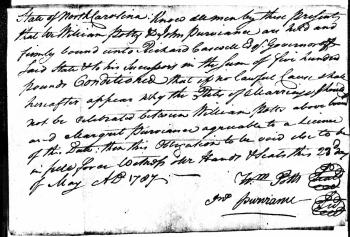 State of North Carolina. Know all men by these presents
that we William Potts & John Purviance are held and
firmly bound unto Richard Caswell Esqr. Governor of
said State & to his Successors in the Sum of five hundred
pounds Conditioned that if no lawful Cause shall
hereafter appear why the State of Marriage should
not be celebrated between William Potts above bound
and Margaret Purviance agreeable to a licence
of this Date: then this Obligation to be void else to be
in full force Witness our Hands & Seals this 23d day
of May AD. 1787
Wm Potts Seal
Jno Purviance